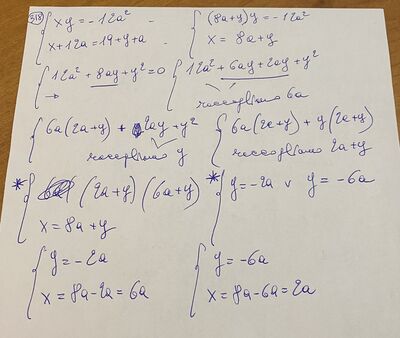 318 { xy = -12a²
x + 12a = 19 + y + a
{ (8a + y) y = -12a²
x = 8a + y
{ 12a² + 8ay + y² = 0
→
{ 12a² + 6ay + 2ay + y²
raccogliamo 6a
{ 6a (2a + y) + 2ay + y²
raccogliamo y
{ 6a (2a + y) + y (2a + y)
raccogliamo 2a + y
* { (2a + y) (6a + y)
x = 8a + y
* { y = -2a ∨ y = -6a
{ y = -2a
x = 8a - 2a = 6a
{ y = -6a
x = 8a - 6a = 2a